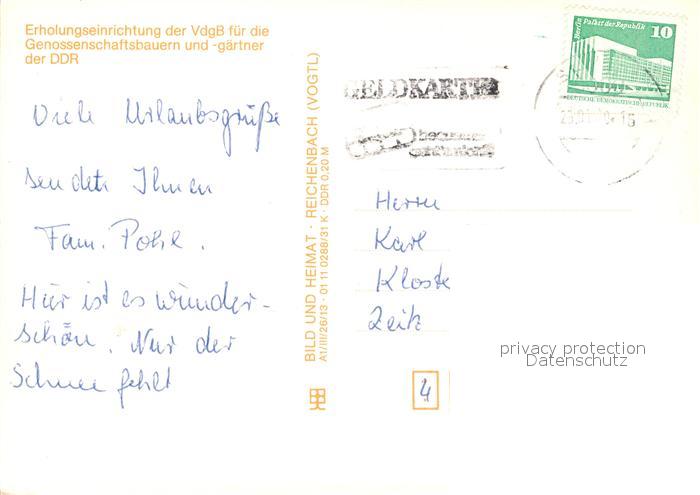 Erholungseinrichtung der VdgB für die
Genossenschaftsbauern und -gärtner
der DDR
Viele Urlaubsgrüße
sendet Ihnen
Fam. Pohl.
Hier ist es wunder-
schön. Nur der
Schnee fehlt
BILD UND HEIMAT · REICHENBACH (VOGTL)
A1/III/26/13 · 01 11 0288/31 K · DDR 0,20 M
GELDKARTE
Berlin Palast der Republik
10
DEUTSCHE DEMOKRATISCHE REPUBLIK
Herrn
Karl
Kloste
Zeitz
4
privacy protection
Datenschutz